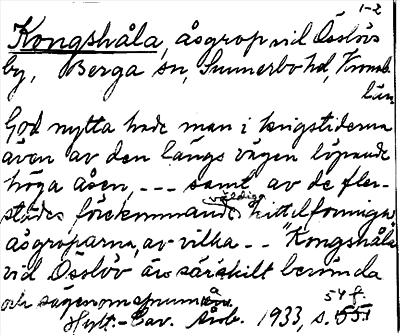 1-2
Kongshåla, åsgrop vid Össlövs
by, Berga sn, Sunnerbo hd, Kronob.
län
God nytta hade man i krigstiderna
även av den längs vägen löpande
höga åsen, --- samt av de fler-
städes förekommande väldiga kittelformiga
åsgroparna, av vilka -- "Kongshåla
vid Össlöv är särskilt berömda
och sägenomspunna
Hylt.-Cav. Årsb. 1933, s. 54 f.